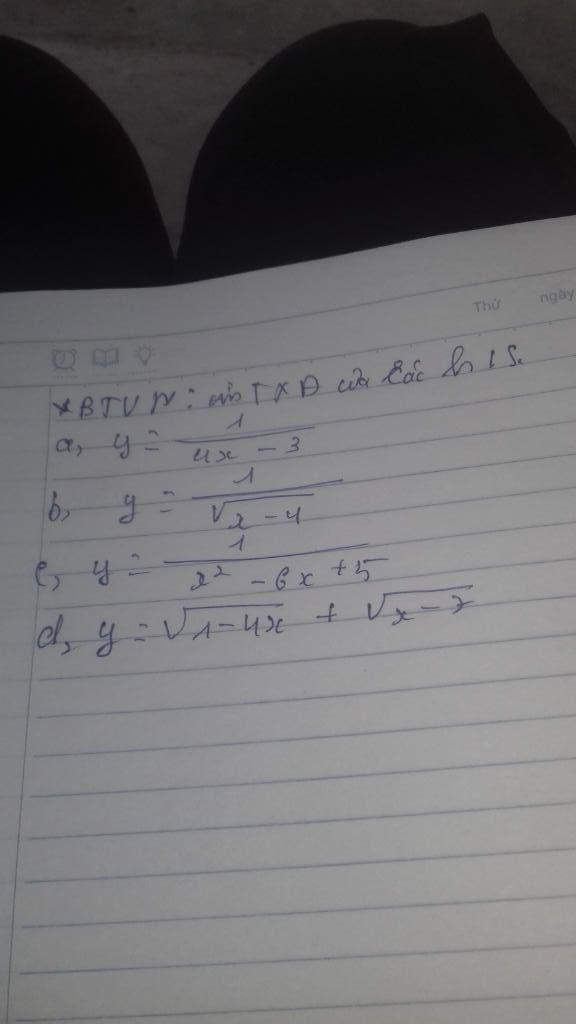 Thứ ngày
*BTVN: tìm TXĐ của các h/s.
a, y = 1/(4x - 3)
b, y = 1/√(x - 4)
c, y = 1/(x² - 6x + 5)
d, y = √(1 - 4x) + √(x - 7)